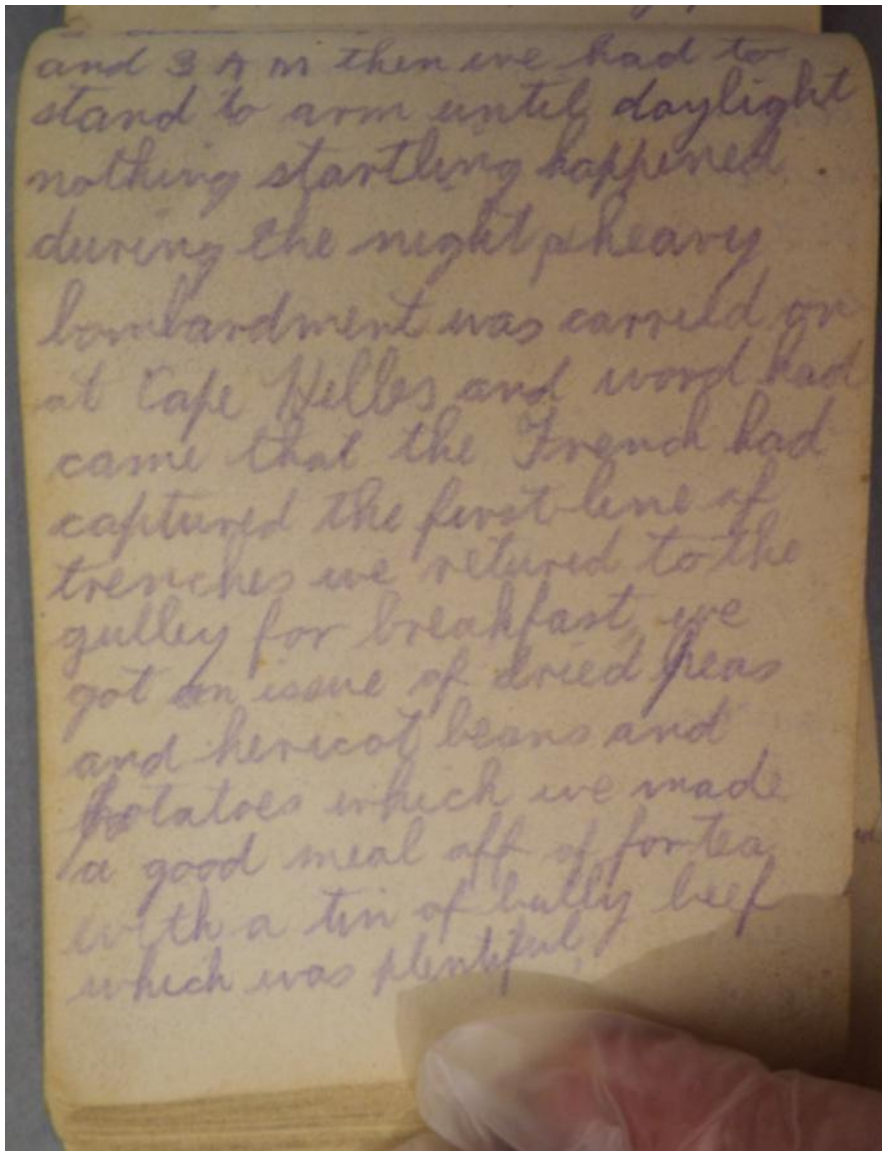 and 3 A M then we had to
stand to arm until daylight
nothing startling happened .
during the night a heavy
bombardment was carried on
at Cape Helles and word had
came that the French had
captured the first line of
trenches we retured to the
gulley for breakfast, we
got an issue of dried peas
and hericot beans and
potatoes which we made
a good meal off of for tea
with a tin of bully beef
which was plentiful